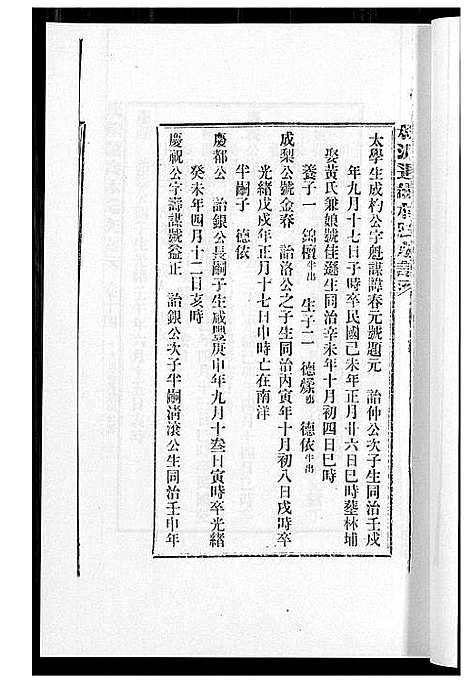 太學生成杓公字魁謀諱春元號題元 詒仲公次子生同治壬戌
年九月十七日子時卒民國己未年正月廿六日巳時塟林埔
娶黃氏兼娘號佳遜生同治辛未年十月初四日巳時
養子一 錦檀半出 生子二 德爍 德依半出
成梨公號金春 詒洛公之子生同治丙寅年十月初八日戌時卒
光緒戊戌年正月十七日申時亡在南洋
半嗣子 德依
慶都公 詒銀公長嗣子生咸豐庚申年九月十叁日寅時卒光緒
癸未年四月十二日亥時
慶祝公字壽謀號益正 詒銀公次子半嗣淸滾公生同治壬申年